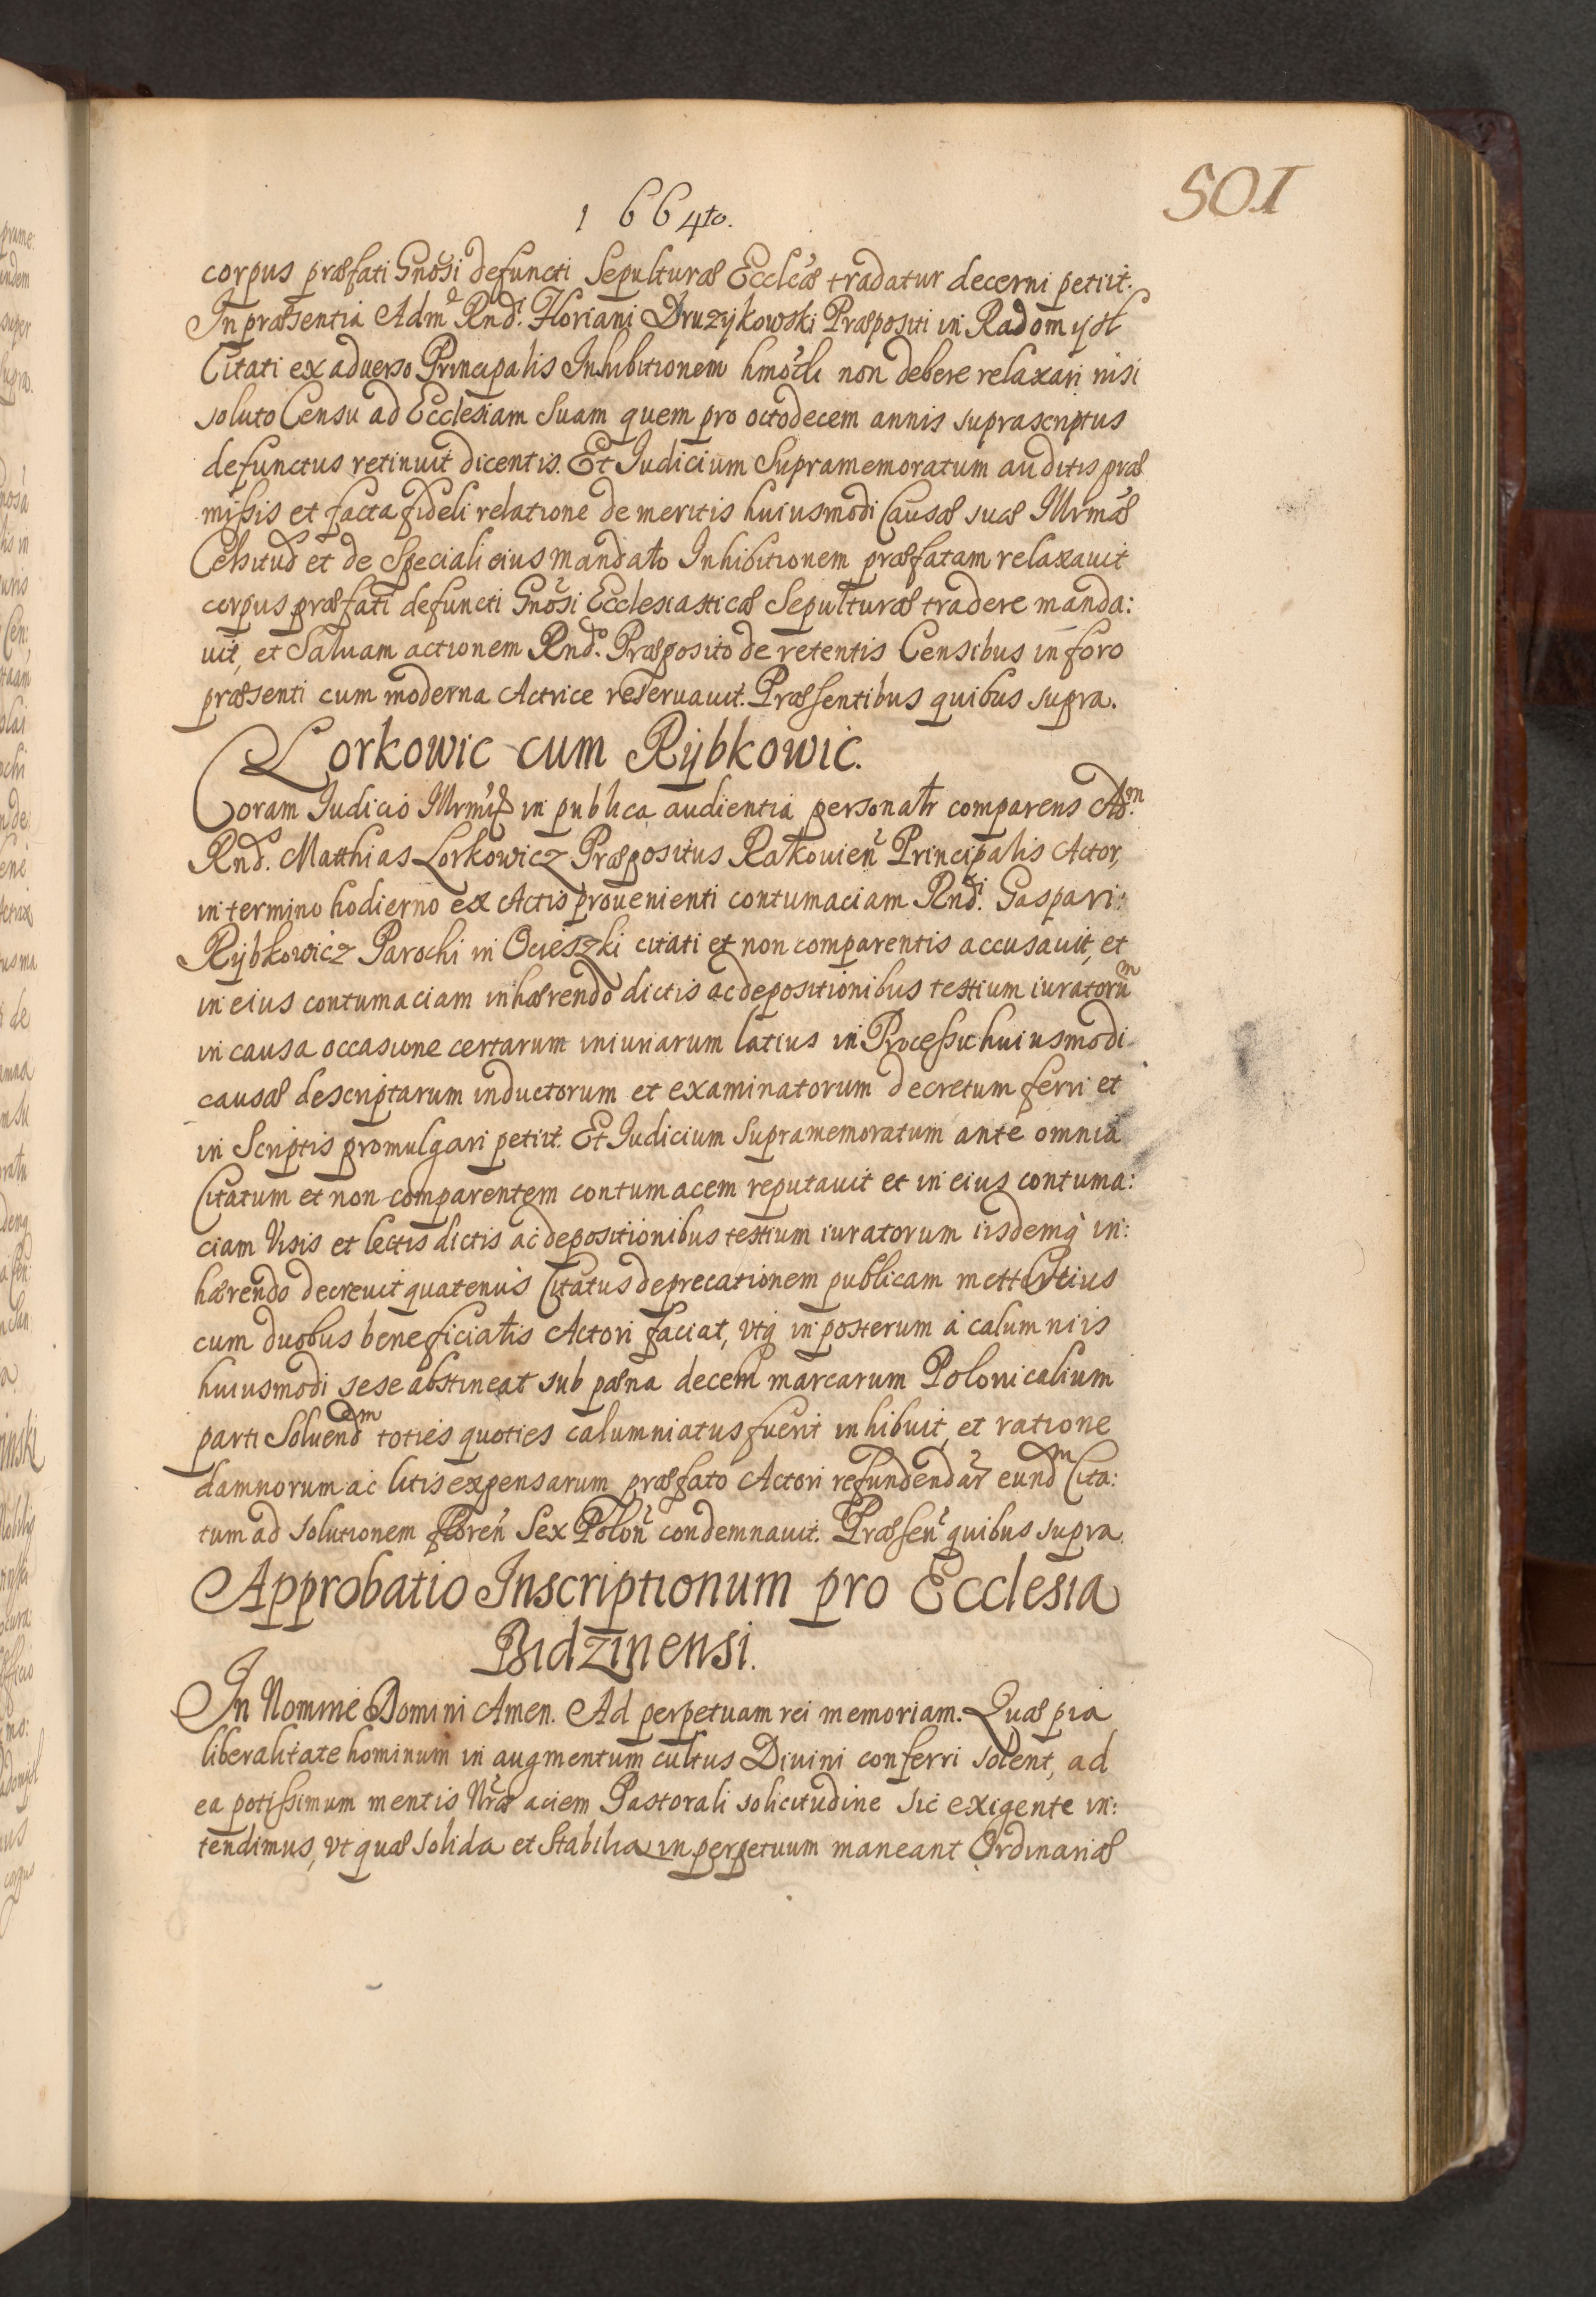 501
1664to.
corpus præfati Gnosi defuncti Sepulturæ Eccleæ tradatur decerni petiit.
In præsentia Adm Rndi. Floriani Druzÿkowski Præpositi in Radomÿsl
Citati ex aduerso Principalis Inhibitionem hmoi non debere relaxari nisi
soluto Censu ad Ecclesiam Suam quem pro octodecem annis suprascriptus
defunctus retinuit dicentis. Et Iudicium Supramemoratum auditis præ
missis et facta fideli relatione de meritis huiusmodi Causæ suæ Illrmæ
Celsitud et de Speciali eius mandato Inhibitionem præfatam relaxauit
corpus præfati defuncti Gnosi Ecclesiasticæ Sepulturæ tradere manda:
uit, et Saluam actionem Rndo. Præposito de retentis Censibus in foro
præsenti cum moderna Actrice reseruauit. Præsentibus quibus supra.
Lorkowic cum Rÿbkowic.
Coram Iudicio in publica audientia personalr comparens Adm.
Rnds. Matthias Lorkowicz Præpositus Rakouien Principalis Actor,
in termino hodierno ex Actis prouenienti contumaciam Rndi. Gaspari:
Rÿbkowicz Parochi in Ocieszki citati et non comparentis accusauit, et
in eius contumaciam inhærendo dictis ac depositionibus testium iuratorum
in causa occasione certarum iniuriarum latius in Processu huiusmodi
causæ descriptarum inductorum et examinatorum decretum ferri et
in Scriptis promulgari petiit. Et Iudicium Supramemoratum ante omnia
Citatum et non comparentem contumacem reputauit et in eius contuma:
ciam Visis et lectis dictis ac depositionibus testium iuratorum iisdemq in:
hærendo decreuit quatenus Citatus deprecationem publicam mettertius
cum duobus beneficiatis Actori faciat, vtq in posterum à calumniis
huiusmodi sese abstineat sub pæna decem marcarum Polonicalium
parti Soluendm toties quoties calumniatus fuerit inhibuit, et ratione
damnorum ac litis expensarum præfato Actori refundendar eundm Cita:
tum ad solutionem floren Sex Polon condemnauit. Præsen quibus supra.
Approbatio Inscriptionum pro Ecclesia
Bidzinensi.
In Nomine Domini Amen. Ad perpetuam rei memoriam. Quæ pia
liberalitate hominum in augmentum cultus Diuini conferri solent, ad
ea potissimum mentis Nræ aciem Pastorali solicitudine sic exigente in:
tendimus, vt quæ solida et Stabilia in perpetuum maneant Ordinariæ